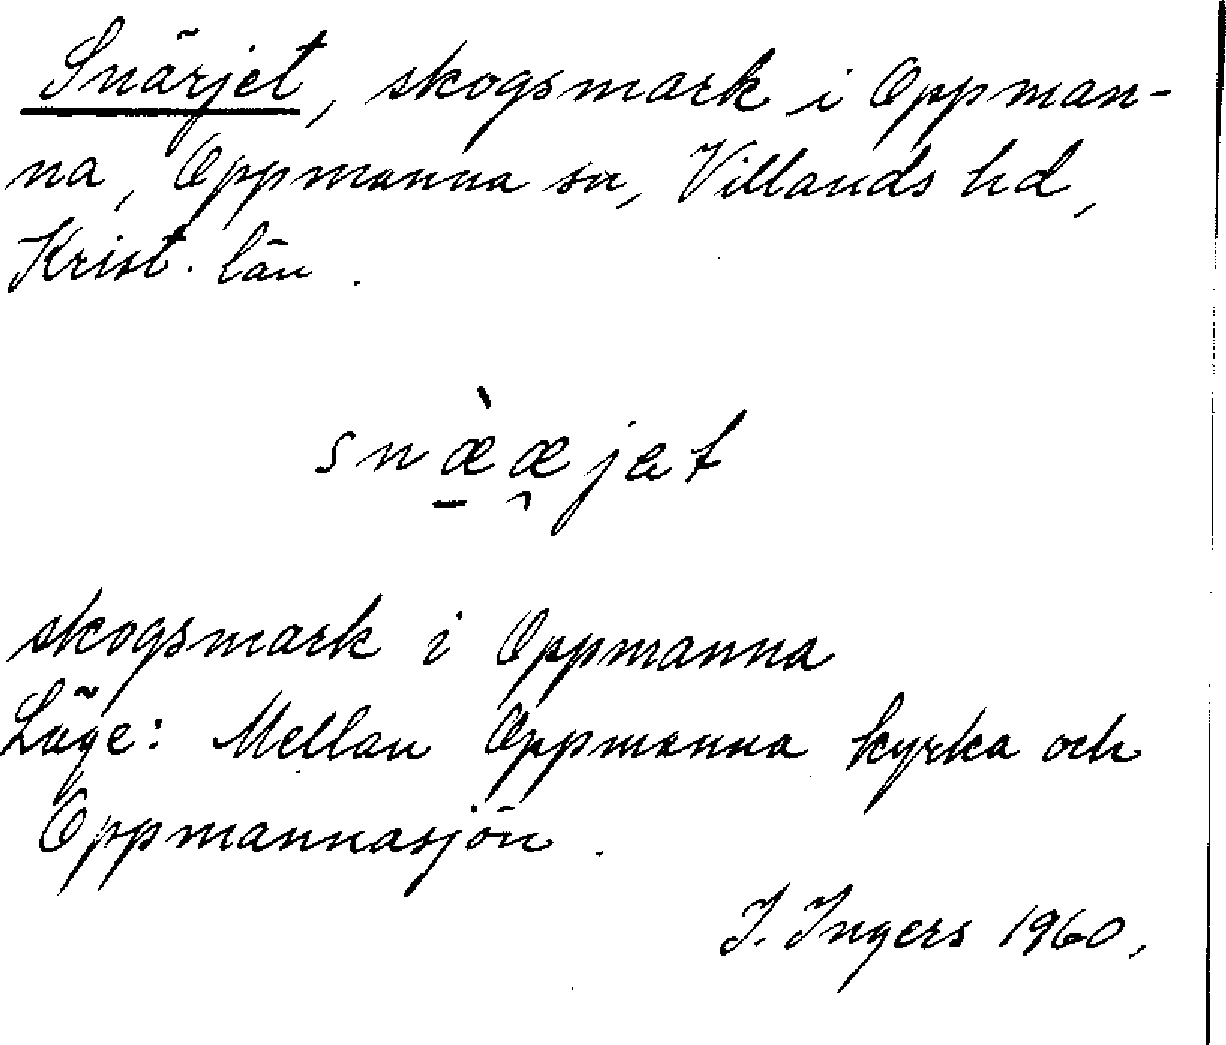 Snärjet, skogsmark i Oppman-
na, Oppmanna sn, Villands hd,
Krist. län.
snæ̠̀æ̯jæt
skogsmark i Oppmanna
Läge: Mellan Oppmanna kyrka och
Oppmannasjön.
I. Ingers 1960.